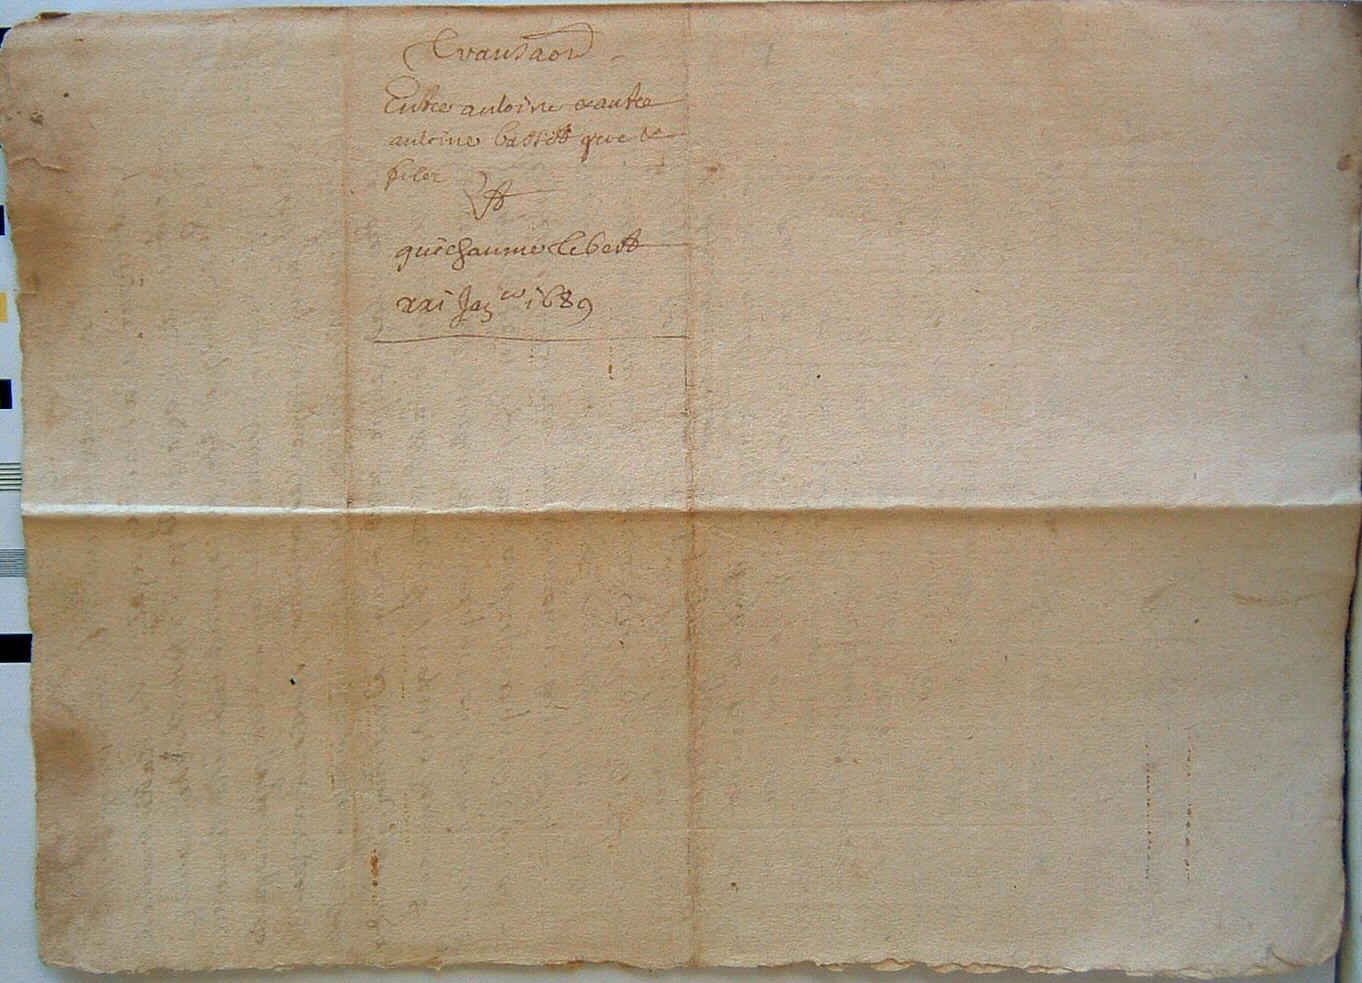 Transaon
Entre antoine & autre
antoine bassett pere &
filez
Et
guilhaume lebert
xxi Janver 1689